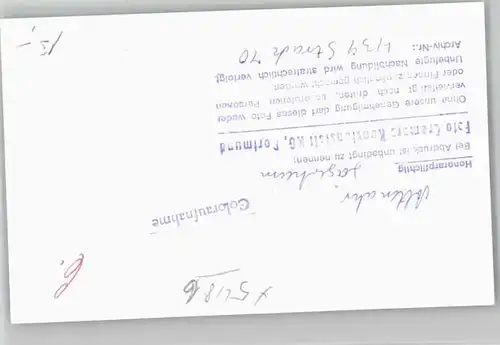 x 5418
Coloraufnahme
Altenahr
Honorarpflichtig
Bei Abdruck ist unbedingt zu nennen:
Foto Cramers Kunstanstalt KG, Dortmund
Ohne unsere Genehmigung darf dieses Foto weder
vervielfältigt noch dritten, besonderen Personen
oder Firmen zugänglich gemacht werden.
Unbefugte Nachbildung wird strafrechtlich verfolgt.
Archiv-Nr.: